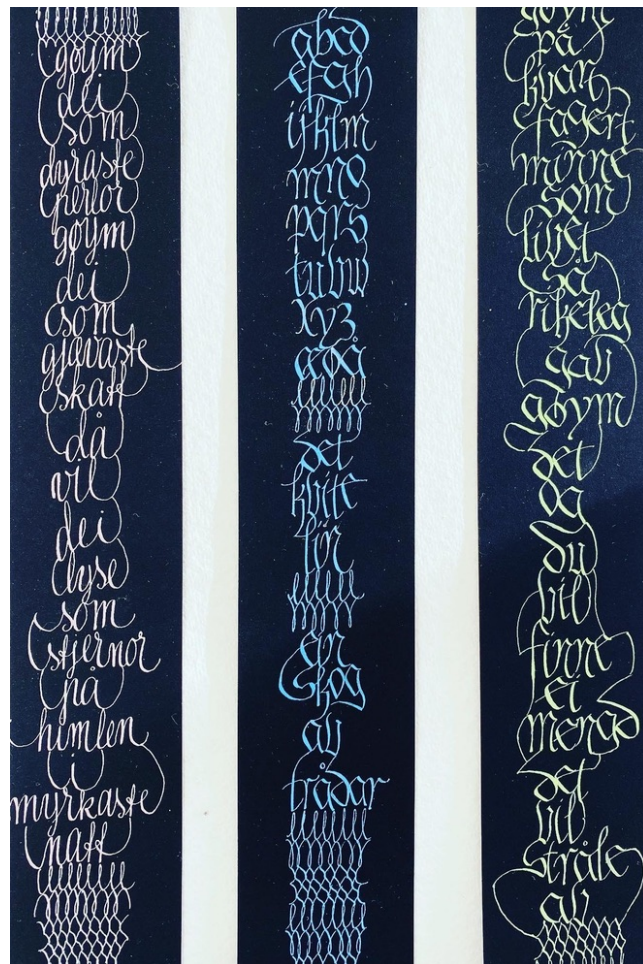 gøym
dei
som
dyraste
perlor
gøym
dei
som
gjævaste
skatt
då
vil
dei
lyse
som
stjernor
på
himlen
i
myrkaste
natt
abcd
efgh
ijklm
mno
pqrs
tuvw
xyz
æøå
det
kvite
lin
en
skog
av
trådar
gøym
på
kvart
fagert
minne
som
livet
så
rikeleg
gav
gøym
det
og
du
vil
finne
ei
mengd
det
vil
stråle
av